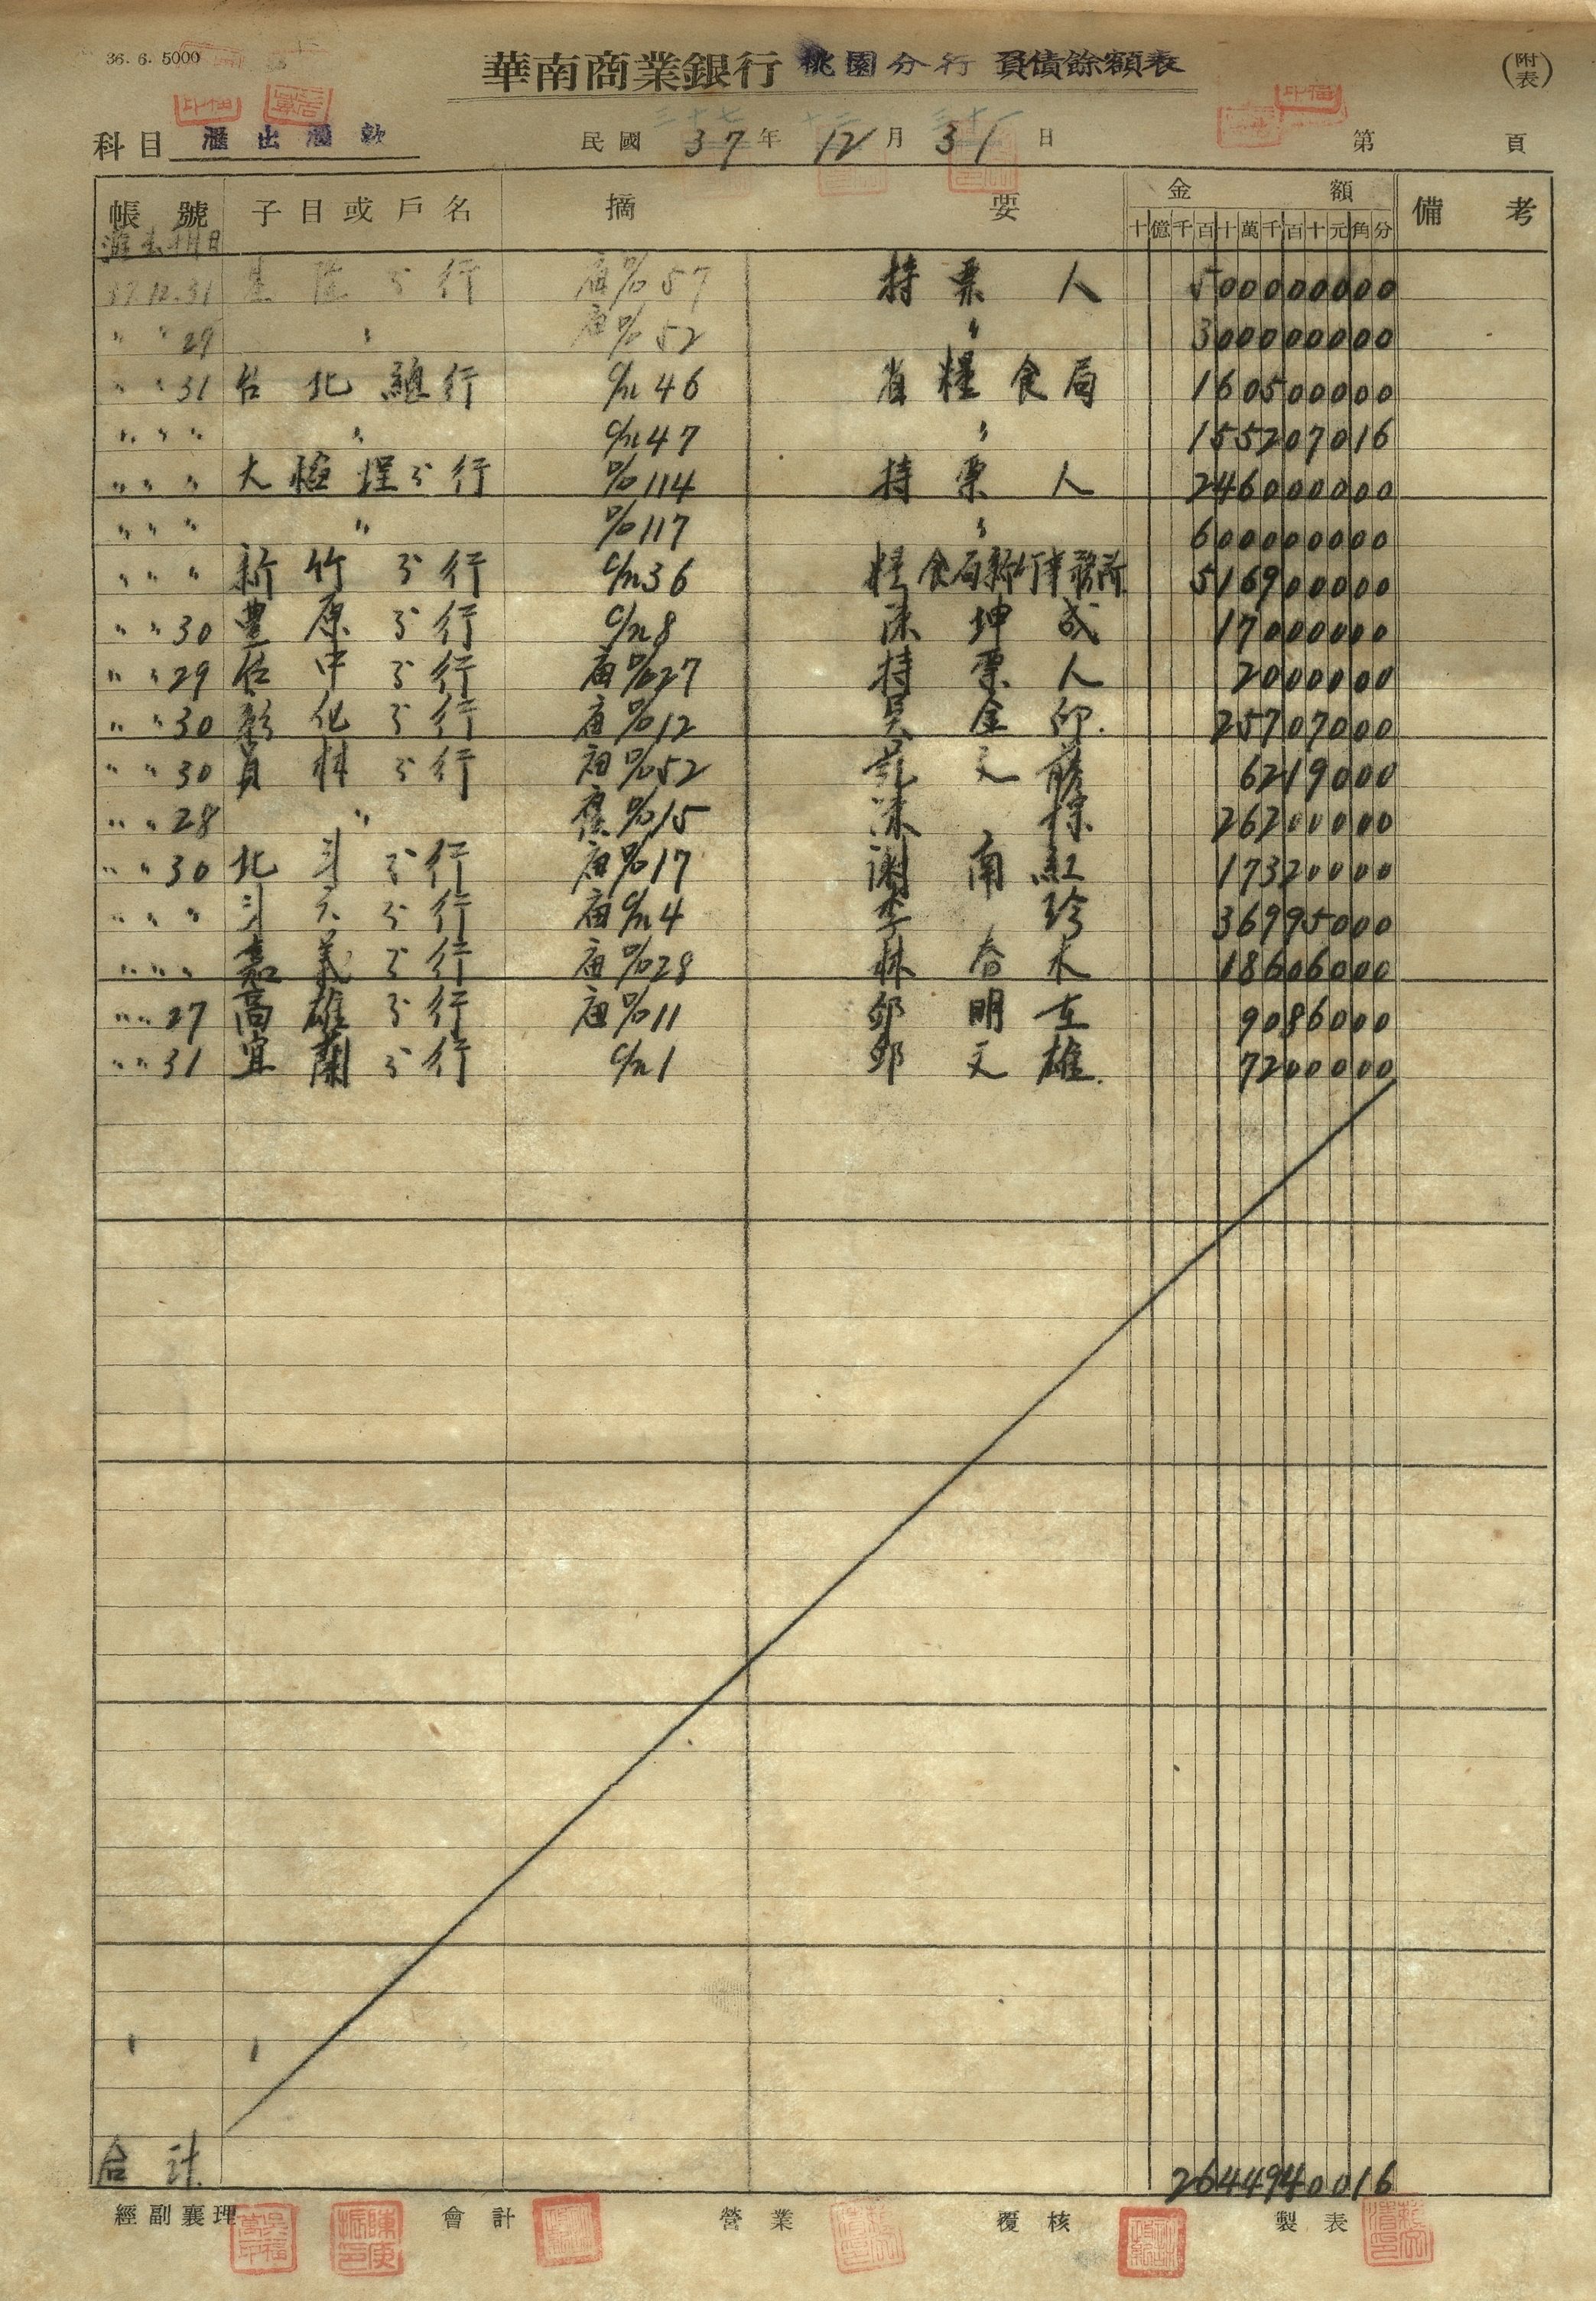 36. 6. 5000
華南商業銀行 桃園分行 負債餘額表
(附表)
科目 滙出滙款 民國 37年 12月 31日 第 頁
帳號 子目或戶名 摘要 金額 備考
十億千百十萬千百十元角分
37.12.31 基隆分行 D/D 57 持票人 500000000
〃 〃 29 〃 D/D 52 〃 300000000
〃 〃 31 台北總行 46 省糧食局 160500000
〃 〃 〃 〃 47 〃 155207016
〃 〃 〃 大稻埕分行 D/D 114 持票人 246000000
〃 〃 〃 〃 D/D 117 〃 600000000
〃 〃 〃 新竹分行 36 糧食局新竹事務所 516900000
〃 〃 30 豊原分行 8 坤成 17000000
〃 〃 29 台中分行 D/D 27 持票人 2000000
〃 〃 30 彰化分行 D/D 12 吳金 25707000
〃 〃 30 員林分行 D/D 52 范文 6219000
〃 〃 28 〃 D/D 15 26200000
〃 〃 30 北斗分行 D/D 17 謝南紅 17320000
〃 〃 〃 斗六分行 4 李珍 36995000
〃 〃 〃 嘉義分行 D/D 28 林春木 18606000
〃 〃 27 高雄分行 D/D 11 邱明 9086000
〃 〃 31 宜蘭分行 1 邱文雄 7200000
合計 2644940016
經副襄理 會計 營業 覆核 製表